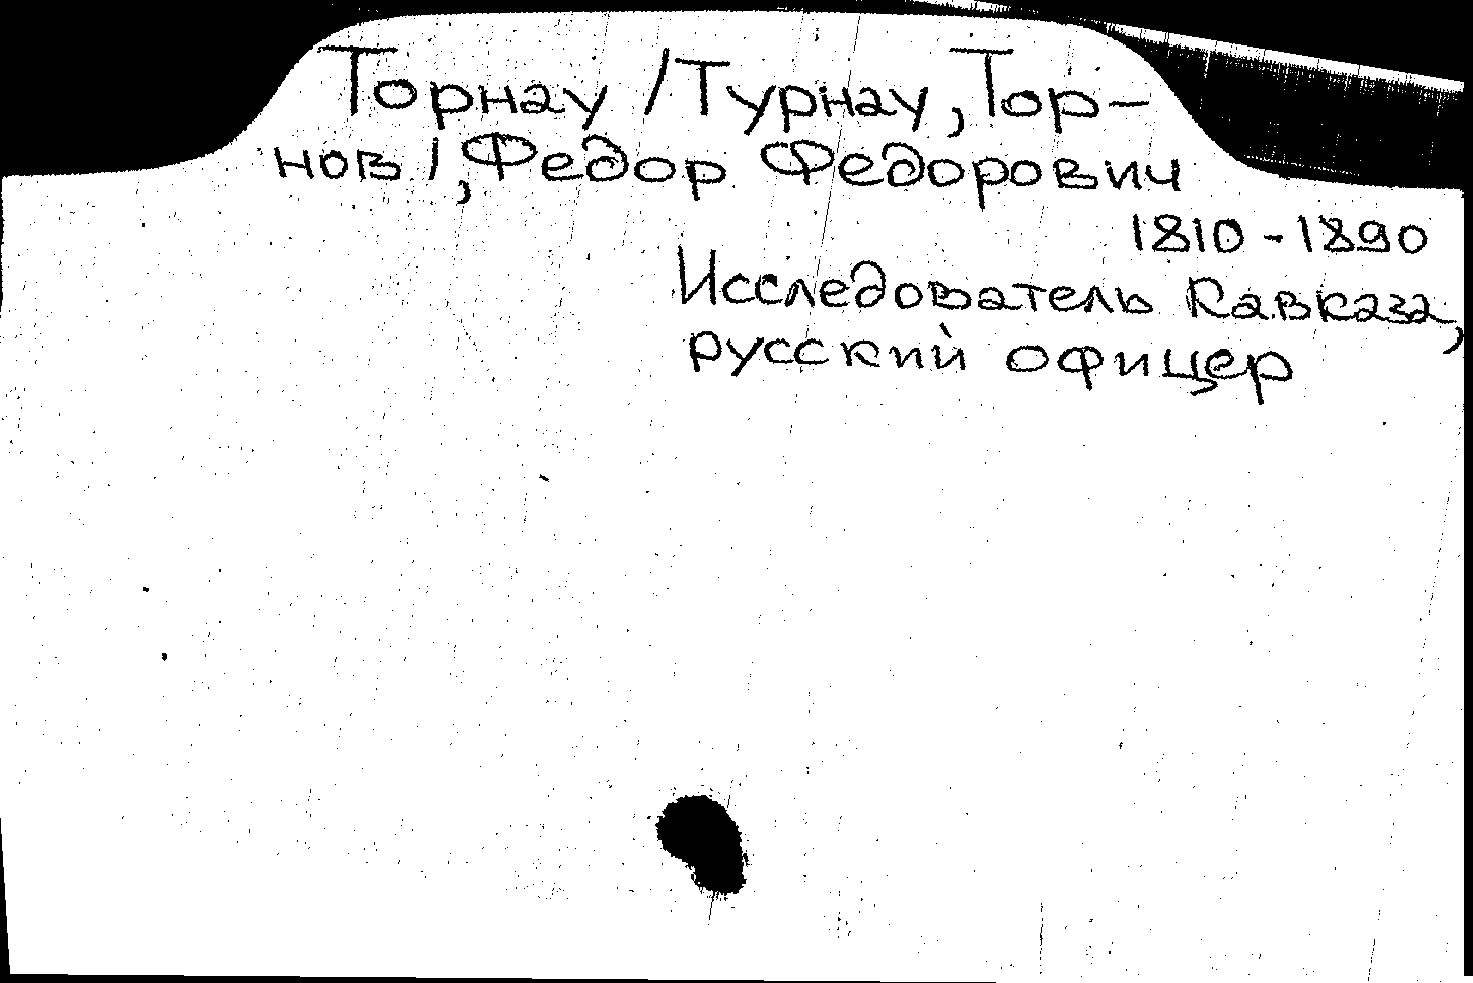 Торнау /Турнау, Тор-
нов/, Федор Федорович
1810-1890
Исследователь Кавказа,
русский офицер